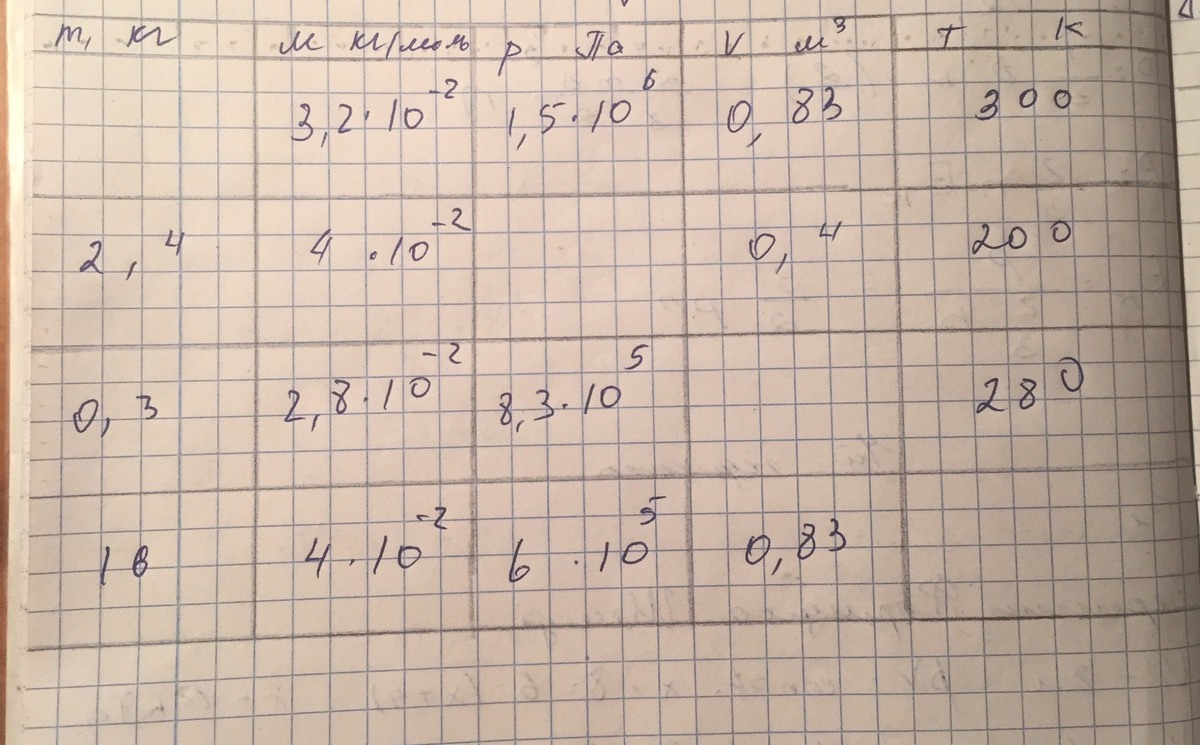 m, кг M кг/моль p Па V м³ T К
3,2·10⁻² 1,5·10⁶ 0,83 300
2,4 4·10⁻² 0,4 200
0,3 2,8·10⁻² 8,3·10⁵ 280
16 4·10⁻² 6·10⁵ 0,83